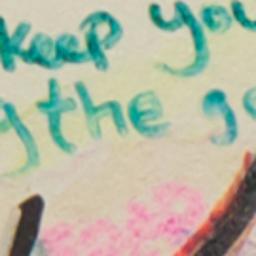 keep you
the